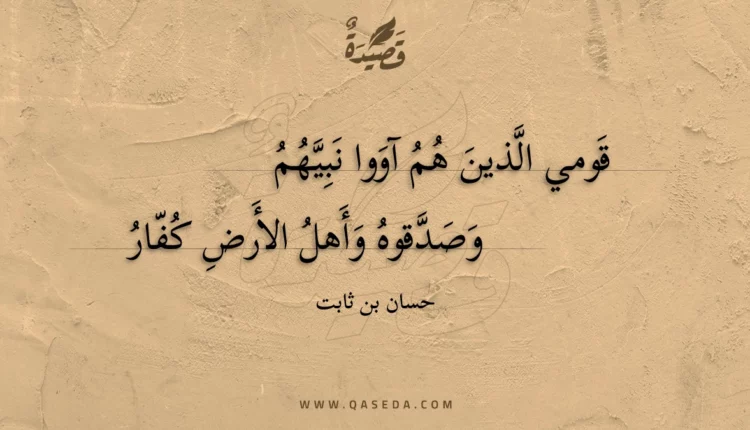 قَصِيدَةٌ
قَومي الَّذينَ هُمُ آوَوا نَبِيَّهُمُ
وَصَدَّقوهُ وَأَهلُ الأَرضِ كُفّارُ
حسان بن ثابت
WWW.QASEDA.COM